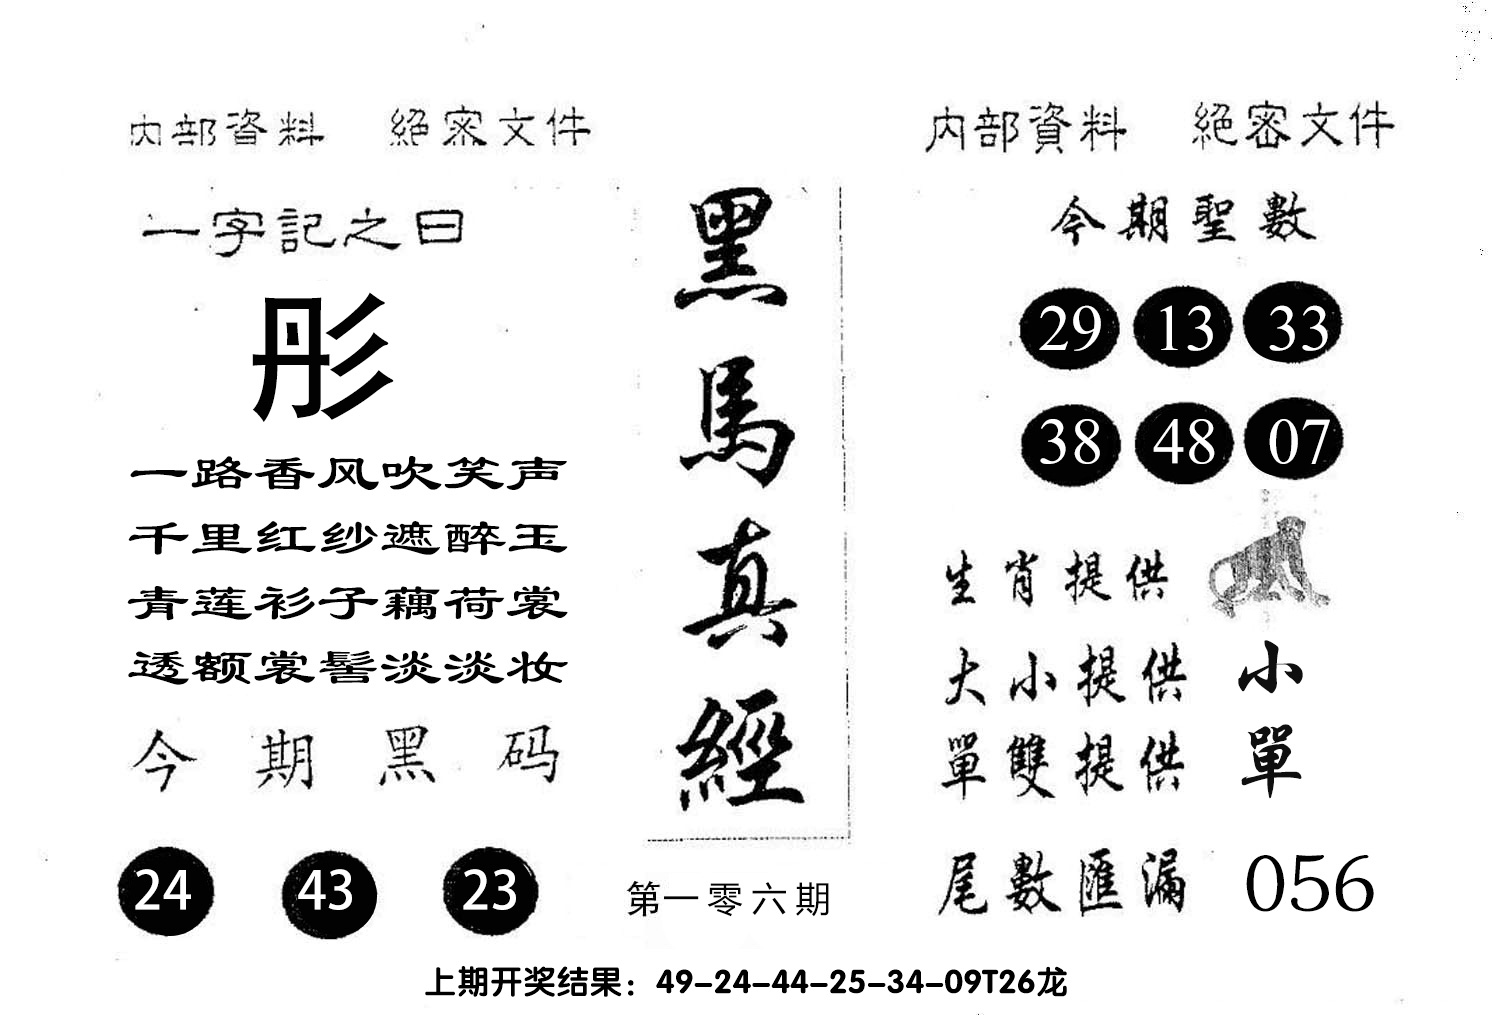 内部資料 絕密文件
一字記之曰
彤
一路香风吹笑声
千里红纱遮醉玉
青莲衫子藕荷裳
透额裳髻淡淡妆
今期黑码
24 43 23
黑馬真經
第一零六期
内部資料 絕密文件
今期聖數
29 13 33
38 48 07
生肖提供
大小提供 小
單雙提供 單
尾數匯漏 056
上期开奖结果：49-24-44-25-34-09T26龙